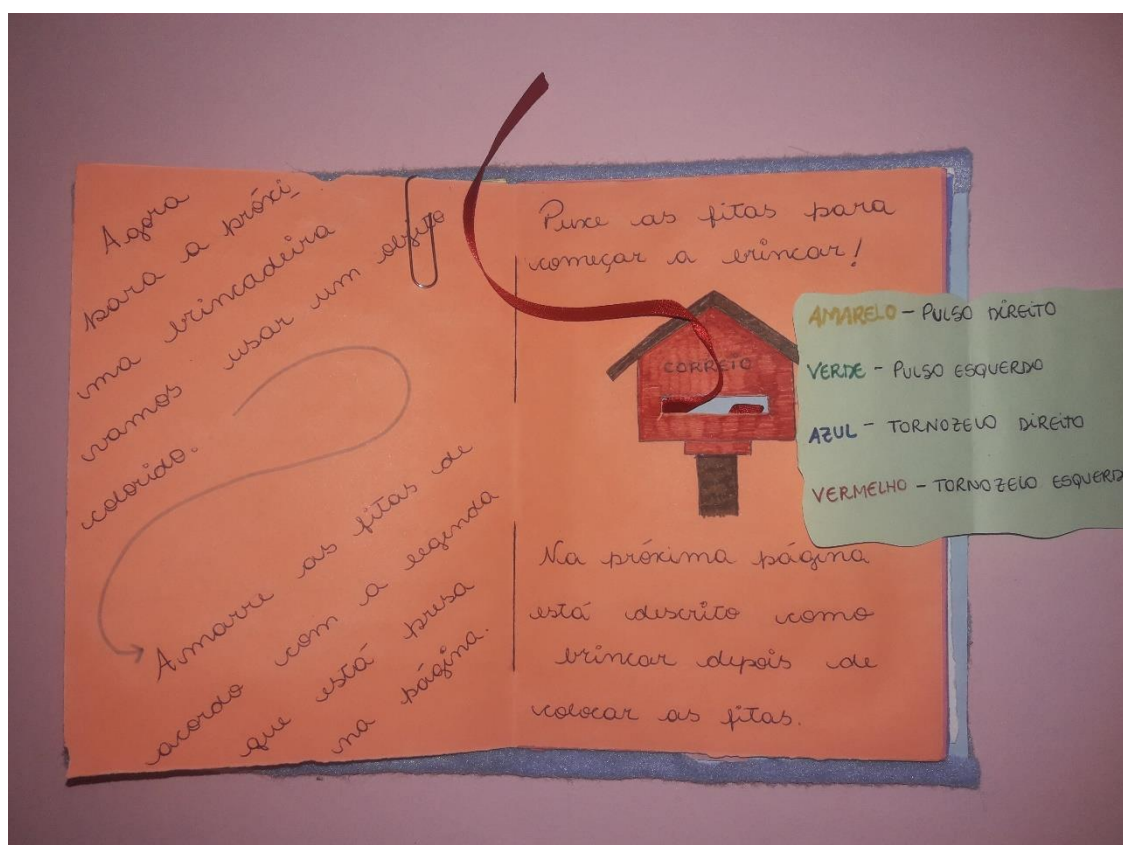 Agora
para a próxi_
ma brincadeira
vamos usar um objeto
colorido.
Amarre as fitas de
acordo com a legenda
que está presa
na página.
Puxe as fitas para
começar a brincar!
CORREIO
AMARELO - PULSO DIREITO
VERDE - PULSO ESQUERDO
AZUL - TORNOZELO DIREITO
VERMELHO - TORNOZELO ESQUERD
Na próxima página
está descrito como
brincar depois de
colocar as fitas.